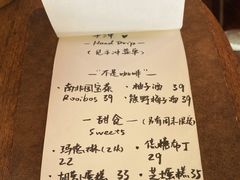 手冲
Hand Drip
(见手冲菜单)
"不是咖啡"
·南非国宝茶 ·柚子酒 39
Rooibos 39 ·熊野梅子酒 39
甜食 (另有周末限定)
Sweets
·玛德琳(2枚) ·焦糖布丁
22 29
35 ·芝士蛋糕 35